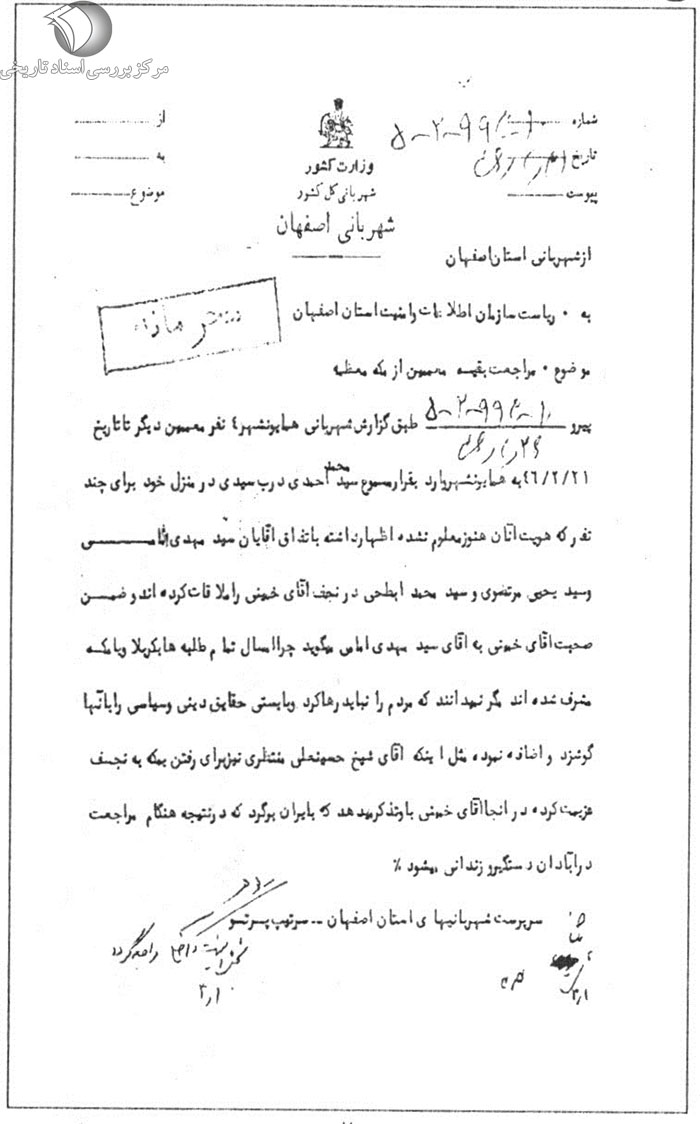 مرکز بررسی اسناد تاریخی
شماره
تاریخ
پیوست
وزارت کشور
شهربانی کل کشور
شهربانی اصفهان
از
به
موضوع
از شهربانی استان اصفهان
به ۰ ریاست سازمان اطلاعات و امنیت استان اصفهان
موضوع ۰ مراجعت بقیه معممین از مکه معظمه
پیرو ۵-۲-۹۹۴-۱۰ طبق گزارش شهربانی همایونشهر ٤ نفر معممین دیگر تا تاریخ
۴۶/۲/۲۱ به همایونشهر وارد بقرار مسموع سید محمد احمدی درب سیدی در منزل خود برای چند
نفر که هویت آنان هنوز معلوم نشده اظهار داشته باتفاق آقایان سید مهدی امامی
وسید یحیی مرتضوی و سید محمد ابطحی در نجف آقای خمینی را ملاقات کرده اند و ضمن
صحبت آقای خمینی به آقای سید مهدی امامی میگوید چرا امسال تمام طلبه ها بکربلا ویا مکه
مشرف شده اند مگر نمیدانند که مردم را نباید رها کرد وبایستی حقایق دینی وسیاسی را بآنها
گوشزد و اضافه نموده مثل اینکه آقای شیخ حسینعلی منتظری نیز برای رفتن بمکه به نجف
عزیمت کرده در انجا آقای خمینی باو تذکر میدهد که بایران برگرد که درنتیجه هنگام مراجعت
در آبادان دستگیر و زندانی میشود ٪
سرپرست شهربانیهای استان اصفهان -- سرتیپ پرتو